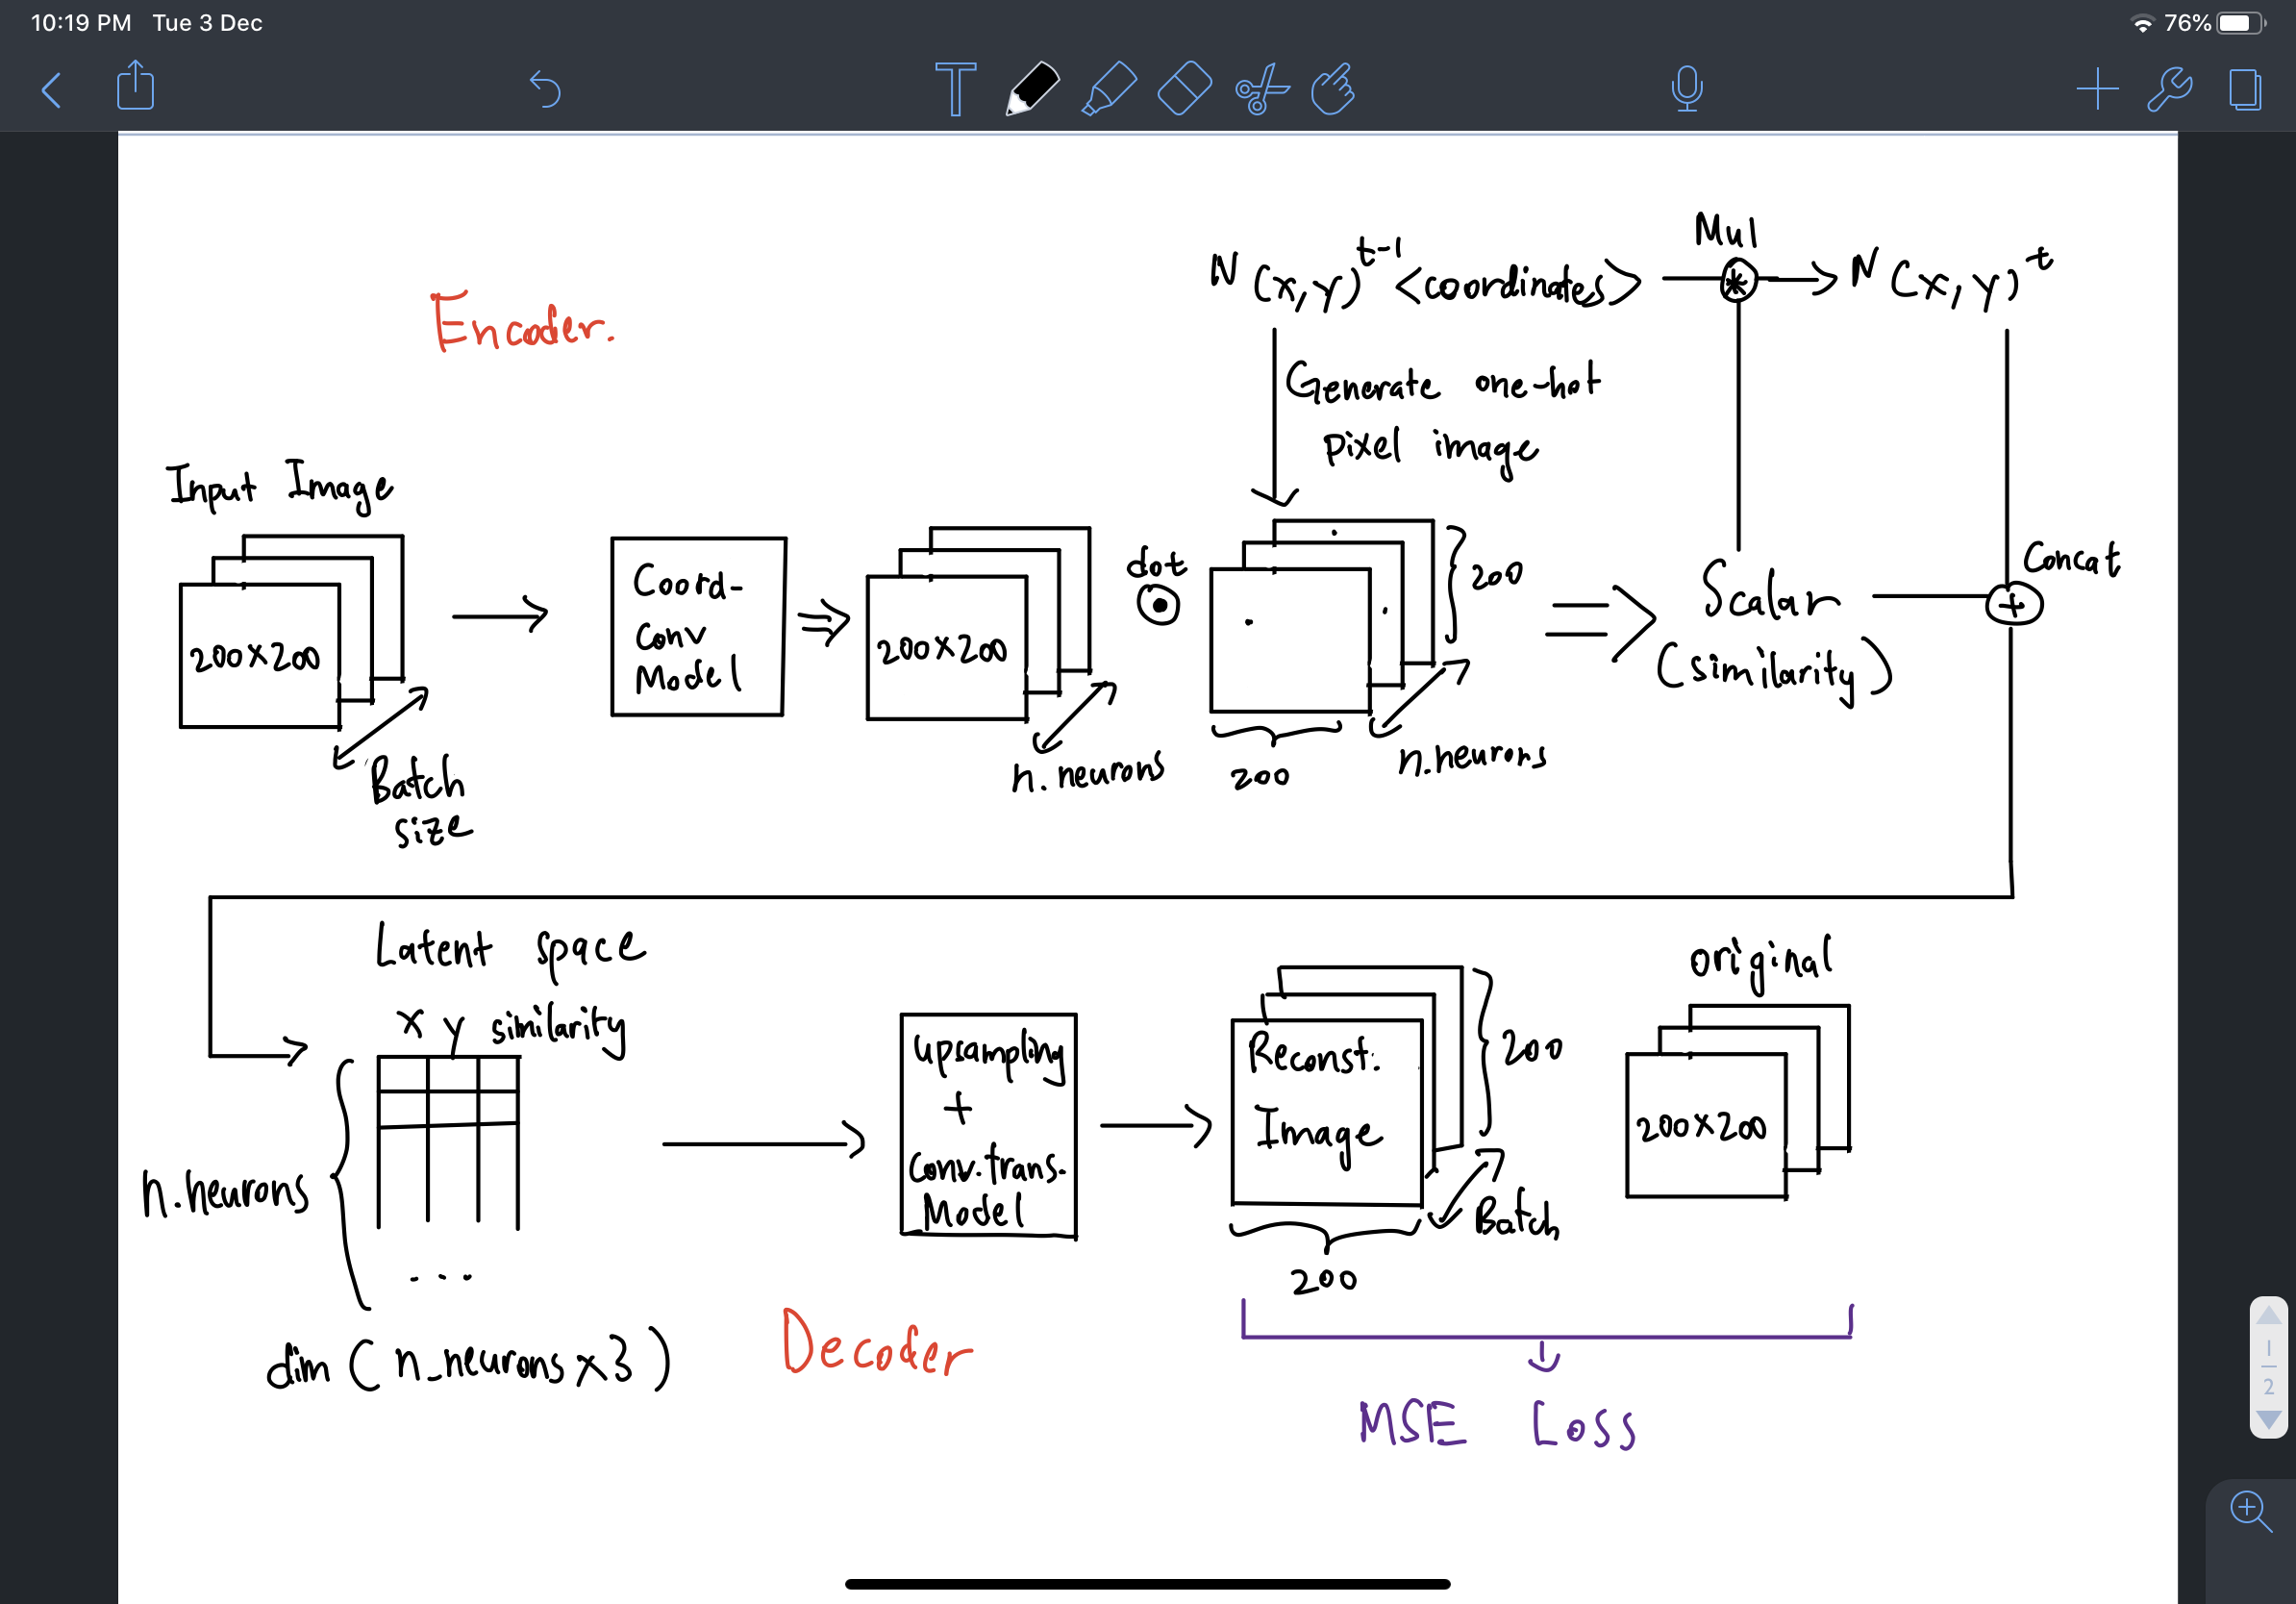 10:19 PM Tue 3 Dec
76%
T
Mul
N(x,y)^t-1 <coordinates> * N(x,y)^t
Encoder.
Generate one-hot
pixel image
Input Image
200x200
Batch
size
Coord-
Conv
Model
200x200
n.neurons
dot
200
200
n.neurons
Scalar
(similarity)
Concat
+
Latent space
x y similarity
n.neurons
...
dim(n_neurons x3)
Upsampling
+
Conv.trans.
Model
Decoder
Reconst.
Image
200
Batch
200
original
200x200
MSE Loss
1
2